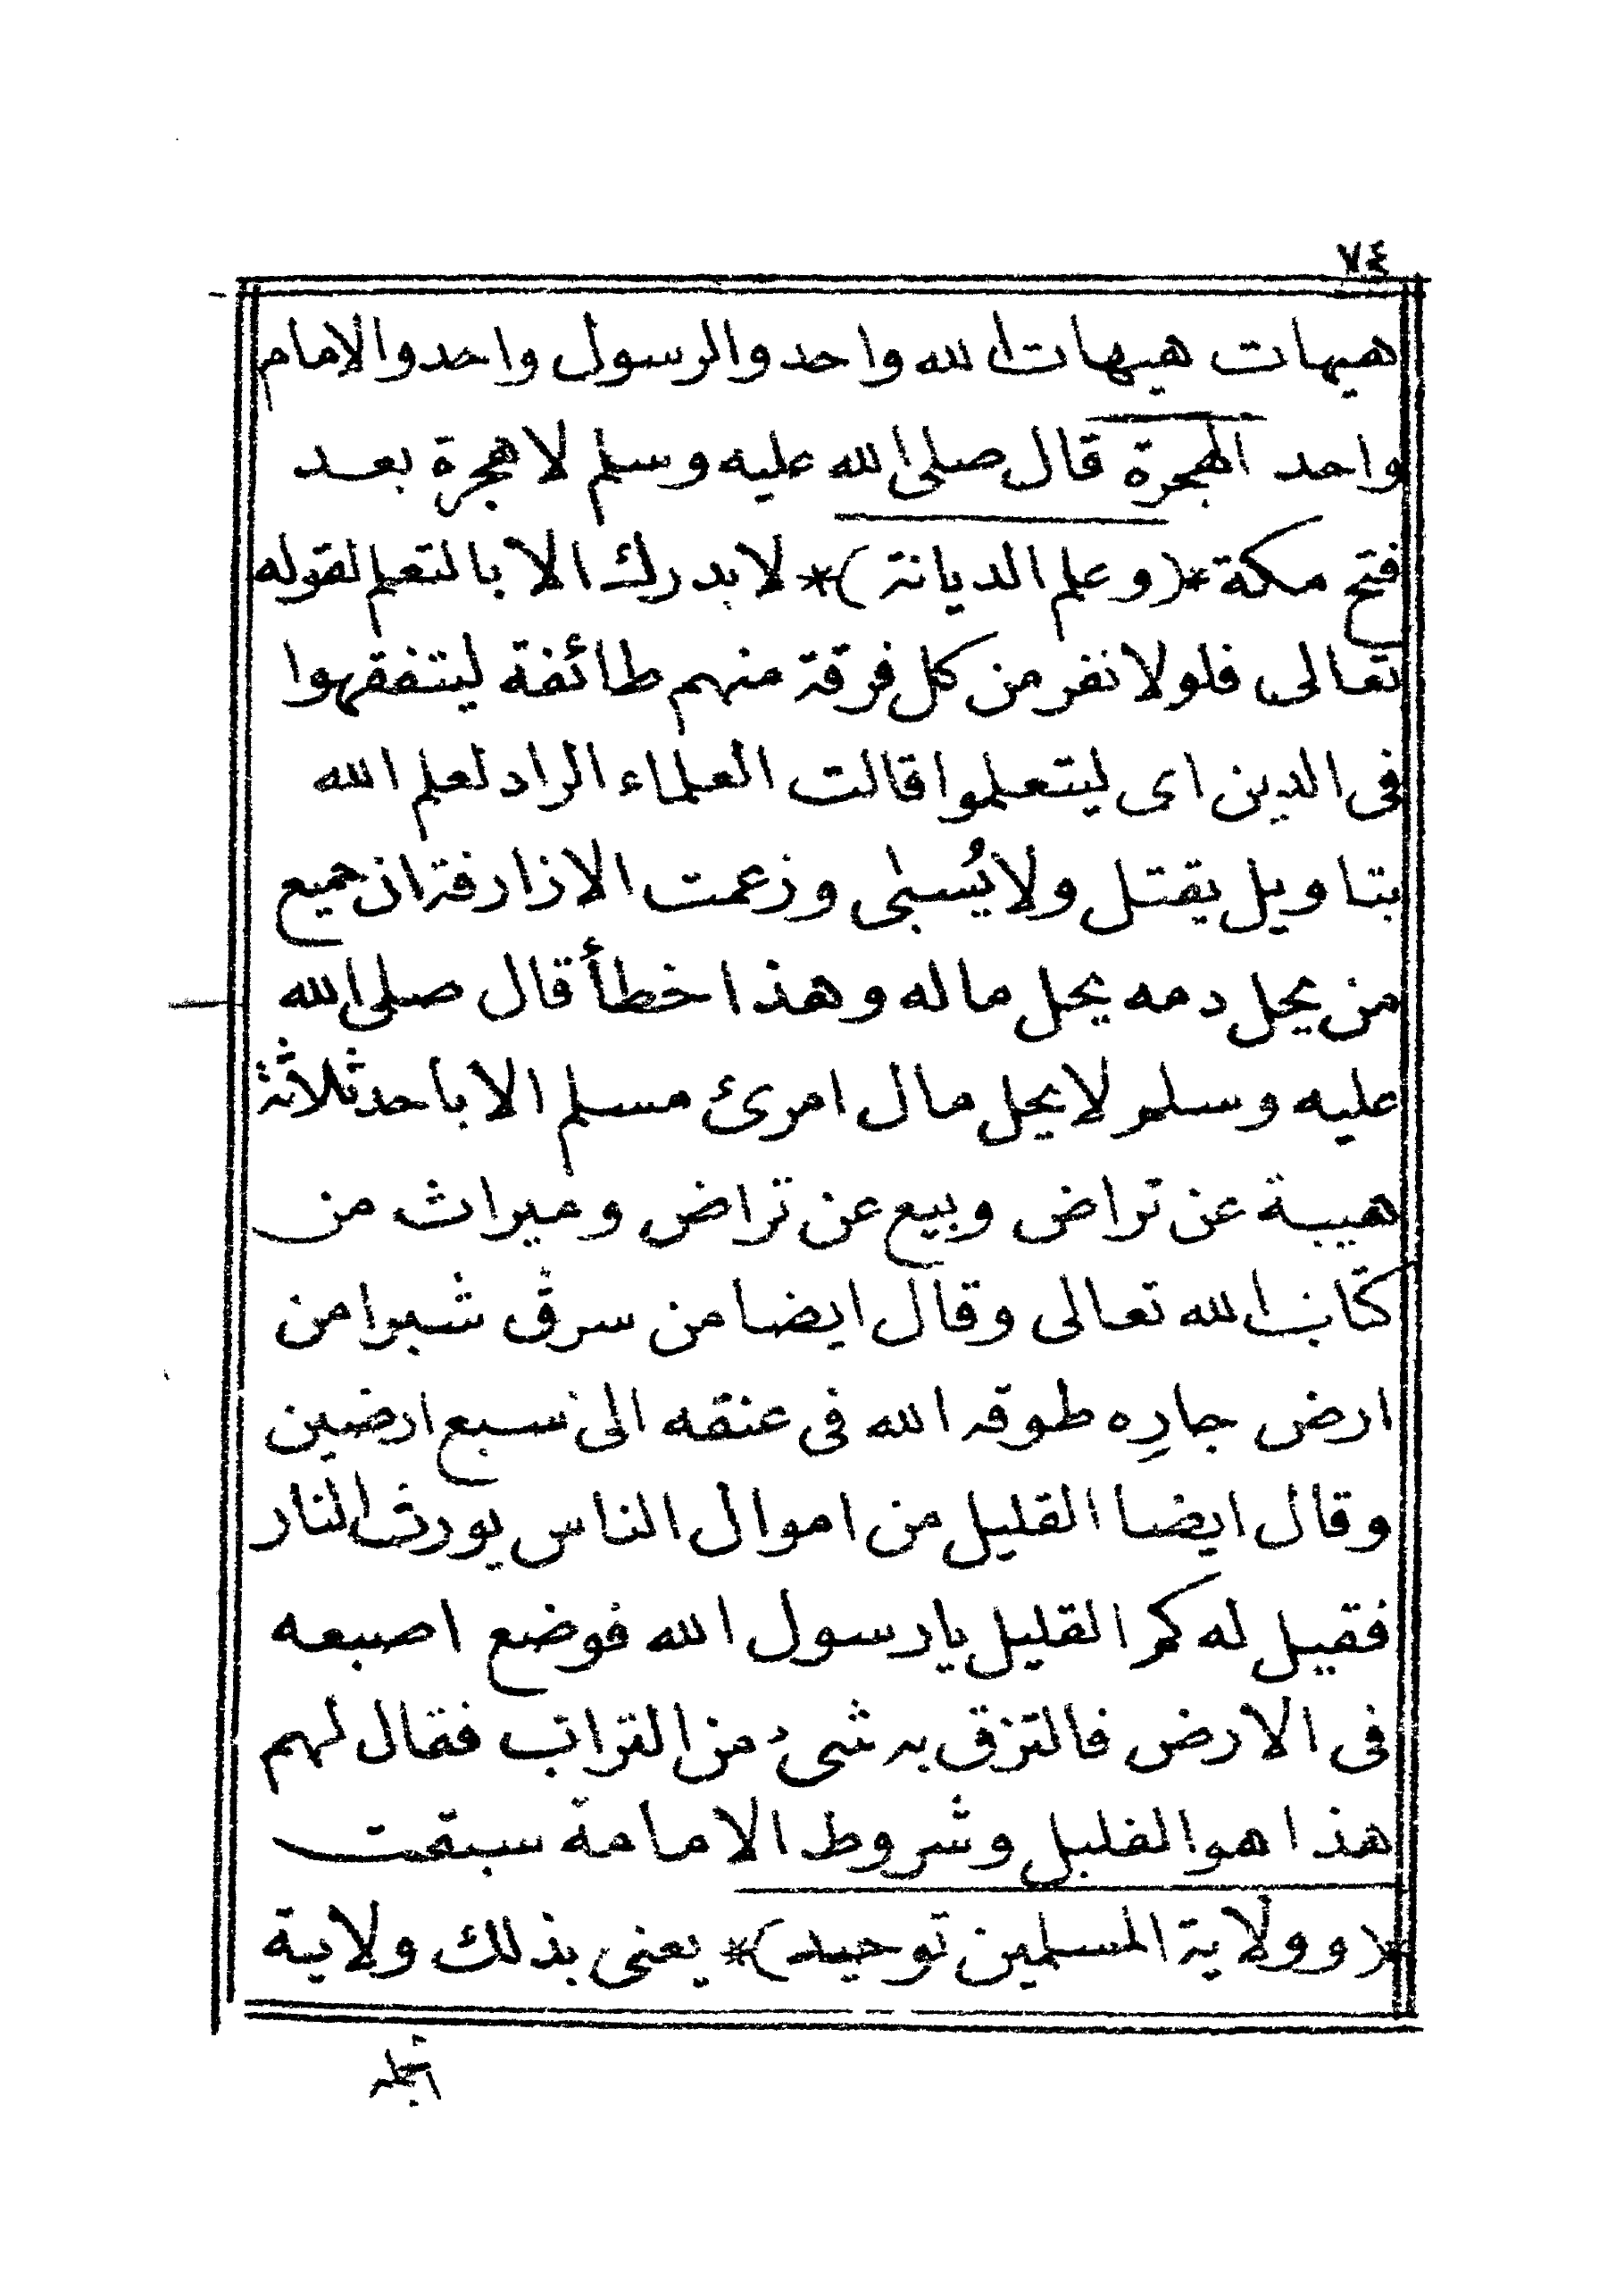 ٧٤
هيهات هيهات الله واحد والرسول واحد والامام
واحد الهجرة قال صلى الله عليه وسلم لا هجرة بعد
فتح مكة *(وعلم الديانة)* لا يدرك الا بالتعلم لقوله
تعالى فلولا نفر من كل فرقة منهم طائفة ليتفقهوا
فى الدين اى ليتعلموا قالت العلماء الراد لعلم الله
بتاويل يقتل ولا يُسبى وزعمت الازارقة ان جميع
من يحل دمه يحل ماله وهذا خطأ قال صلى الله
عليه وسلم لا يحل مال امرئ مسلم الا باحد ثلاثة
هيبة عن تراض وبيع عن تراض وميراث من
كتاب الله تعالى وقال ايضا من سرق شبرا من
ارض جاره طوقه الله فى عنقه الى سبع ارضين
وقال ايضا القليل من اموال الناس يورث النار
فقيل له كم القليل يا رسول الله فوضع اصبعه
فى الارض فالتزق به شىء من التراب فقال لهم
هذا هو القليل وشروط الامامة سبقت
وولاية المسلمين توحيد)* يعنى بذلك ولاية
الجملة